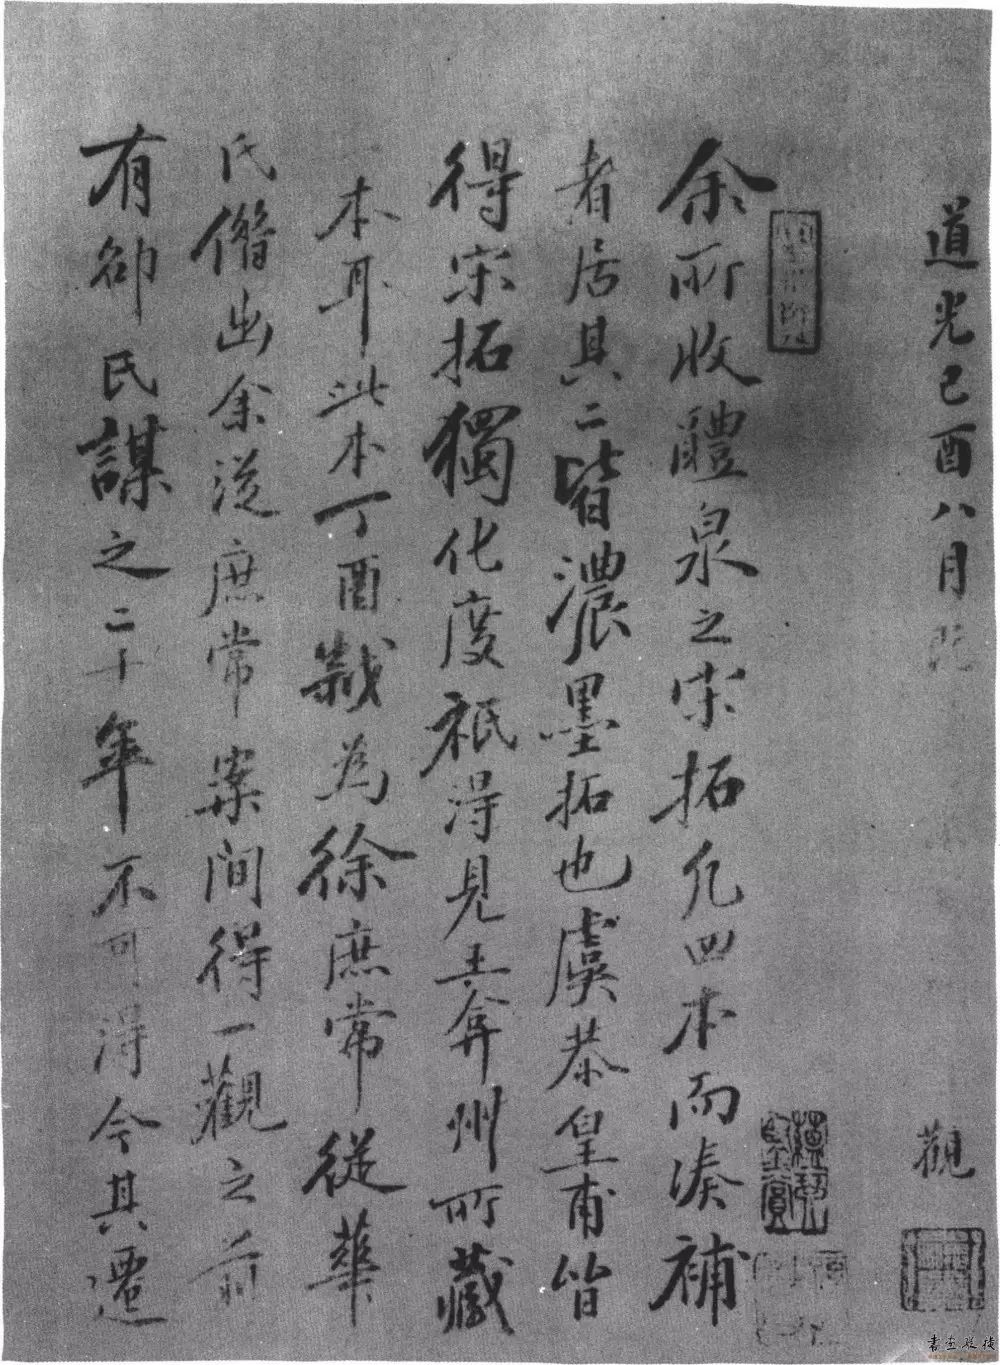 道光己酉八月
觀
余所收醴泉之宋拓凡四本而湊補
者居其二皆濃墨拓也虞恭皇甫皆
得宋拓獨化度祇得見王弇州所藏
本耳此本丁酉歲為徐庶常從華
氏借出余從庶常案間得一觀之前
有卻氏謀之二十年不可得今其遷